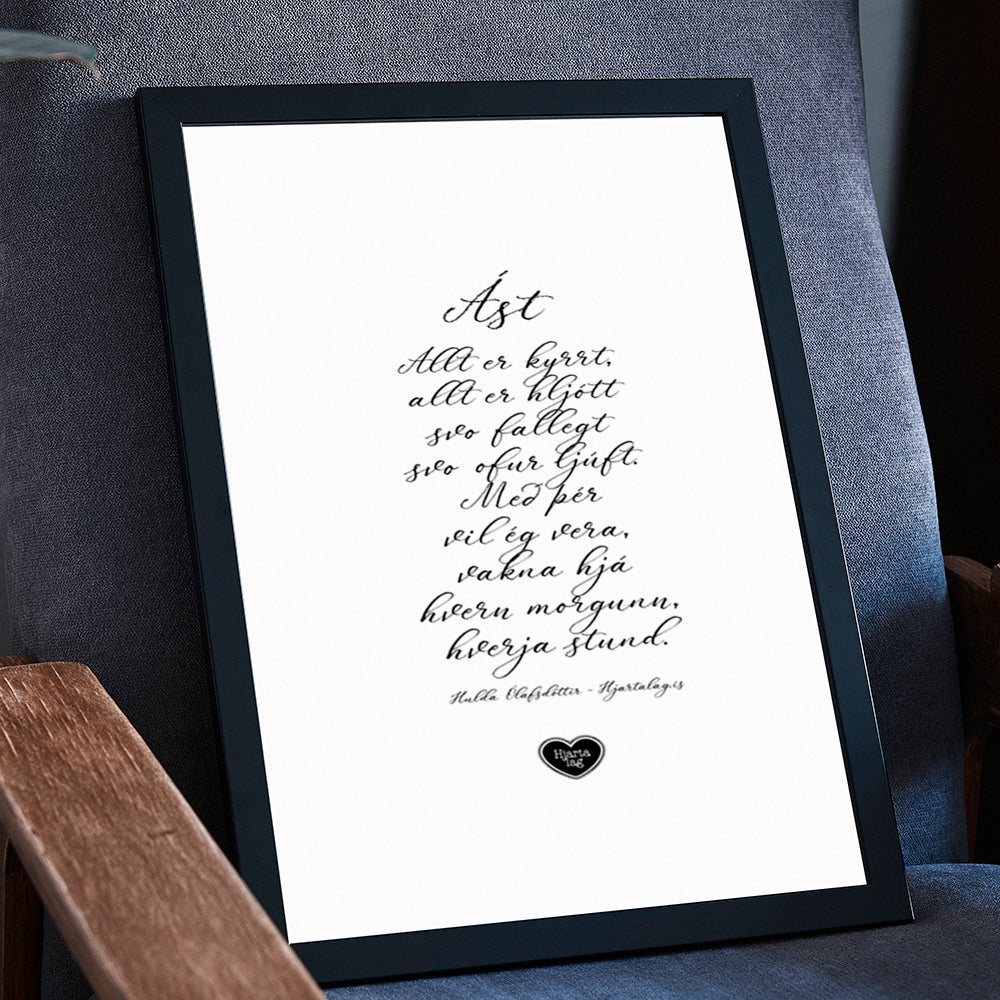 Ást
Allt er kyrrt,
allt er hljótt
svo fallegt
svo ofur ljúft.
Með þér
vil ég vera,
vakna hjá
hvern morgunn,
hverja stund.
Hulda Ólafsdóttir - Hjartalag.is
Hjarta
lag